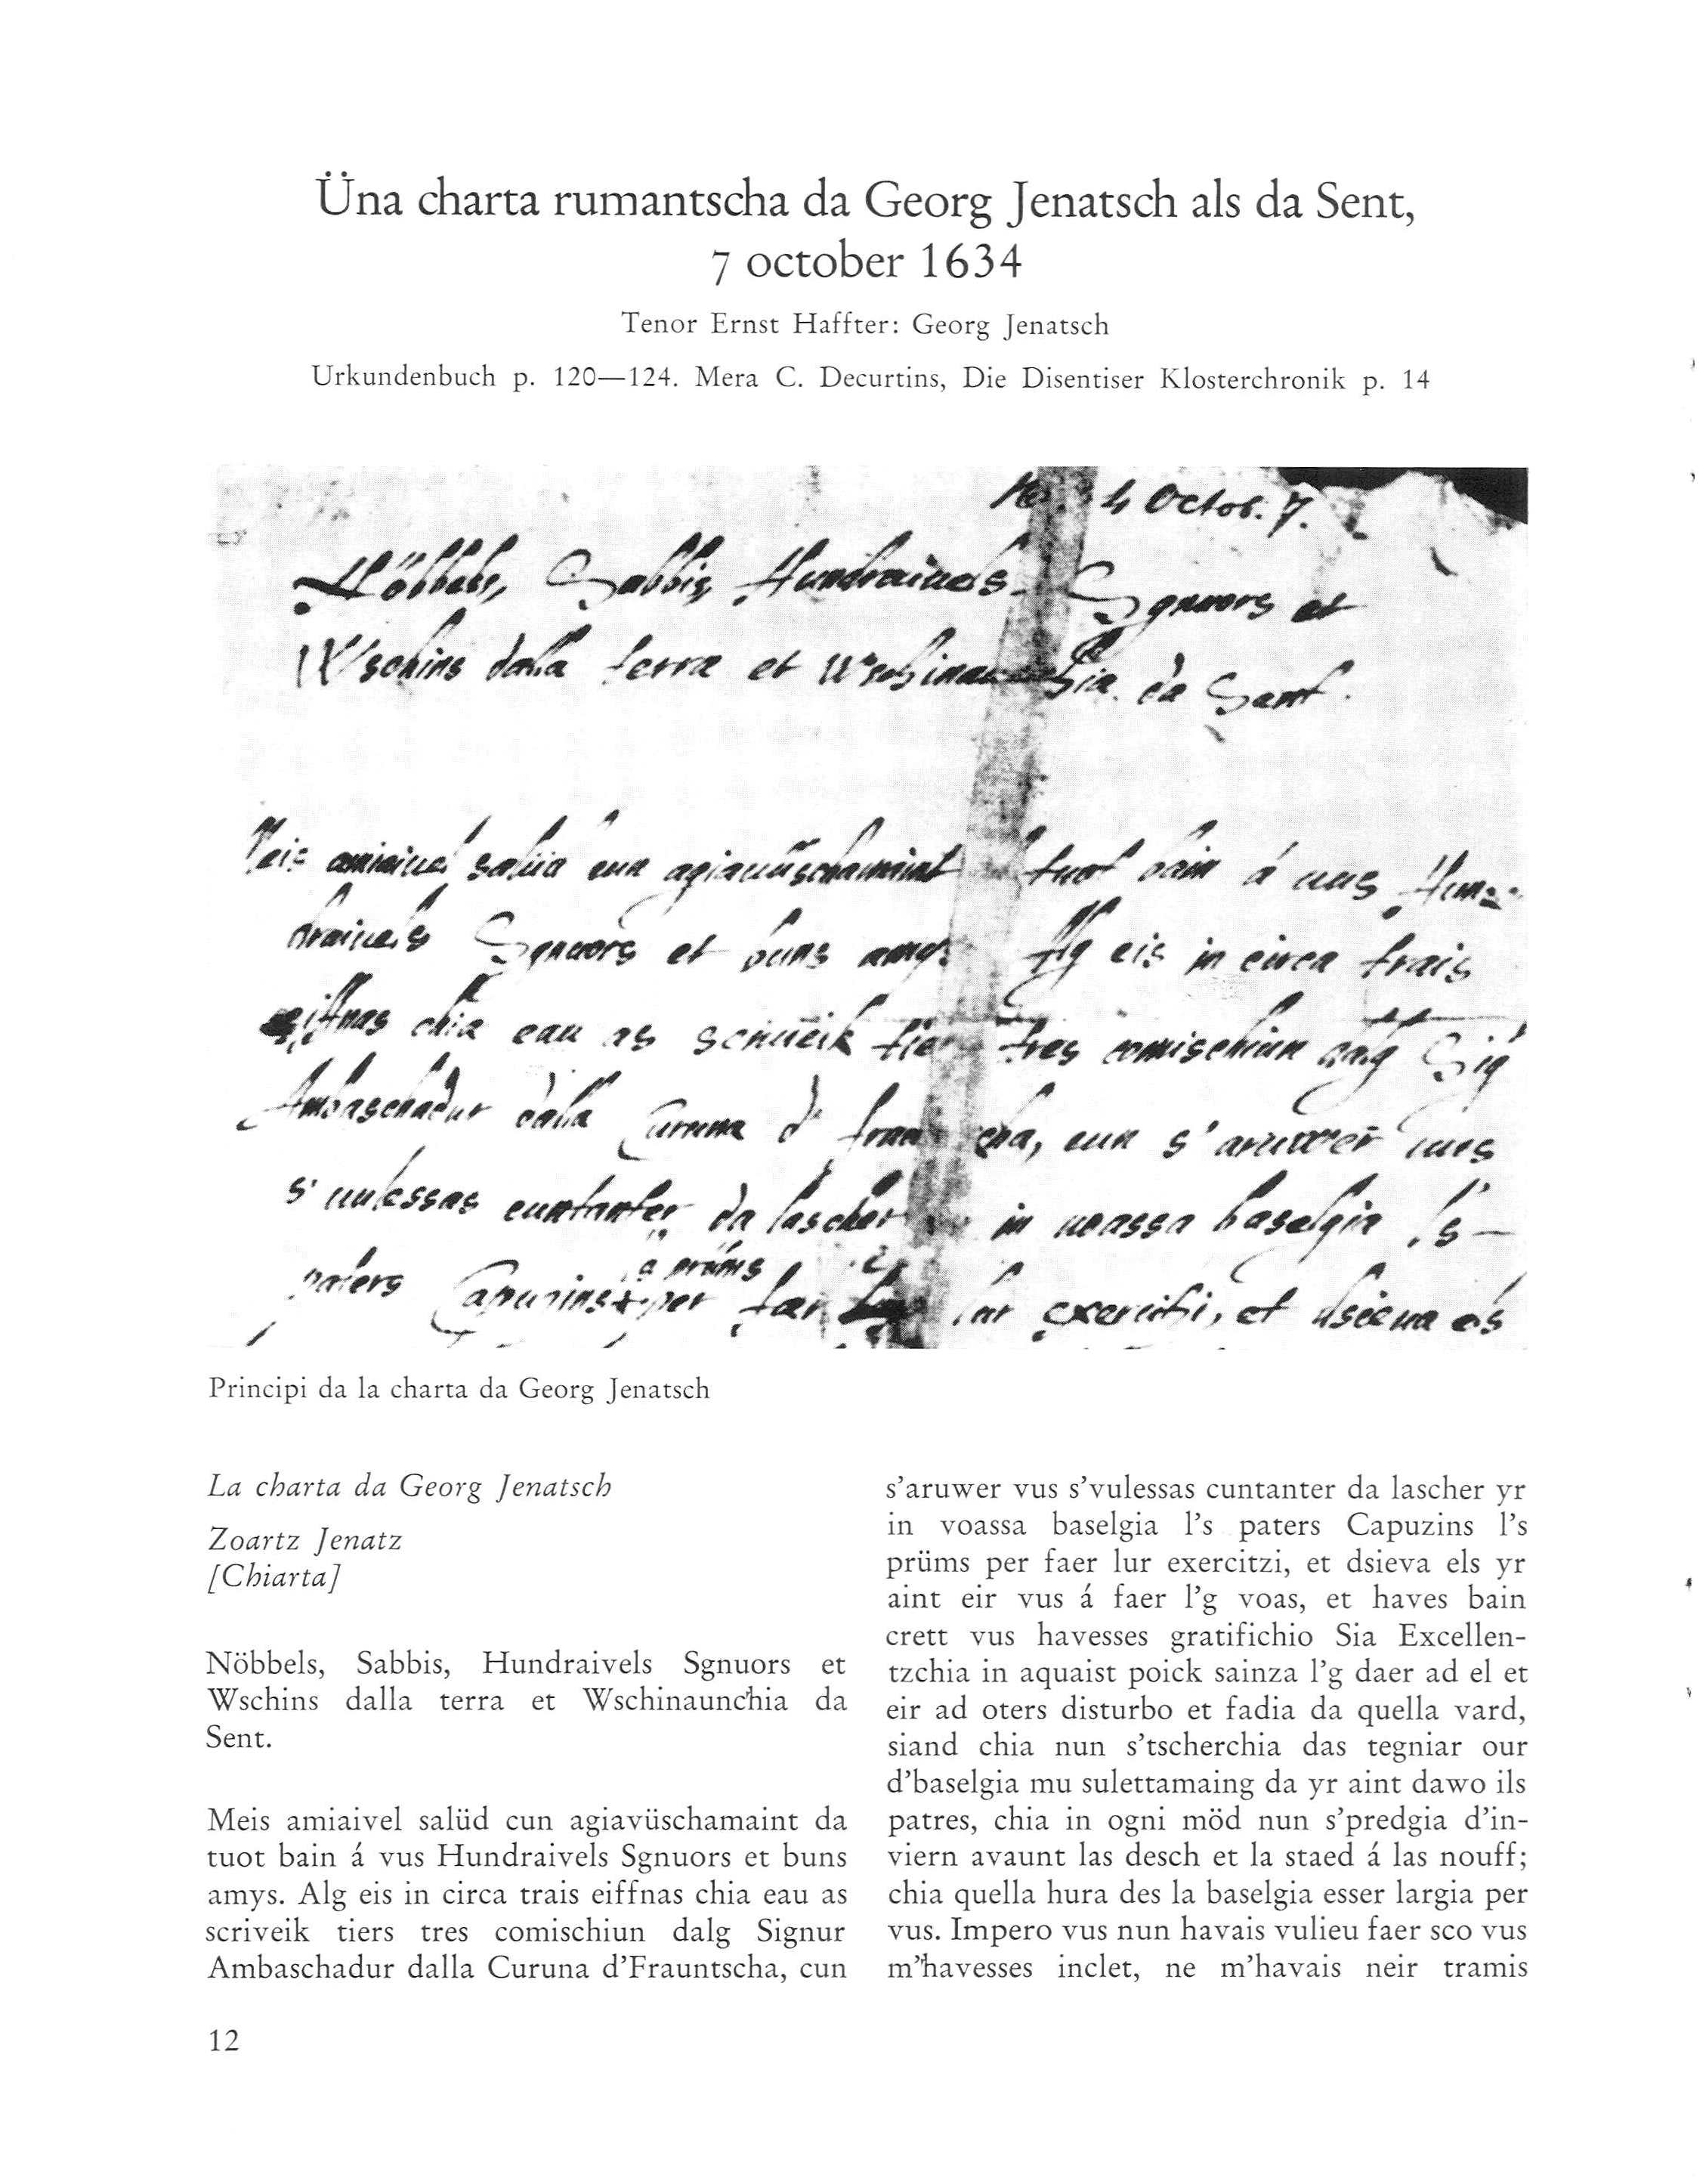 Üna charta rumantscha da Georg Jenatsch als da Sent,
7 october 1634
Tenor Ernst Haffter: Georg Jenatsch
Urkundenbuch p. 120—124. Mera C. Decurtins, Die Disentiser Klosterchronik p. 14
4 Octob. 7.
Nöbbels, Sabbis, Hundraivels Sgnuors et
Wschins dalla terra et Wschinaunchia da Sent.
Meis amiaivel salüd cun agiavüschamaint tuot bain á vus Hun-
draivels Sgnuors et buns amys. Alg eis in circa trais
eiffnas chia eau as scriveik tiers tres comischiun dalg Sigr
Ambaschadur dalla Curuna d'Frauntscha, cun s'aruwer vus
s'vulessas cuntanter da lascher in voassa baselgia l's
paters Capuzins per faer lur exercitzi, et dsieva els
l's prüms
Principi da la charta da Georg Jenatsch
La charta da Georg Jenatsch
Zoartz Jenatz
[Chiarta]
Nöbbels, Sabbis, Hundraivels Sgnuors et
Wschins dalla terra et Wschinaunc'hia da
Sent.
Meis amiaivel salüd cun agiavüschamaint da
tuot bain á vus Hundraivels Sgnuors et buns
amys. Alg eis in circa trais eiffnas chia eau as
scriveik tiers tres comischiun dalg Signur
Ambaschadur dalla Curuna d'Frauntscha, cun
s'aruwer vus s'vulessas cuntanter da lascher yr
in voassa baselgia l's paters Capuzins l's
prüms per faer lur exercitzi, et dsieva els yr
aint eir vus á faer l'g voas, et haves bain
crett vus havesses gratifichio Sia Excellen-
tzchia in aquaist poick sainza l'g daer ad el et
eir ad oters disturbo et fadia da quella vard,
siand chia nun s'tscherchia das tegniar our
d'baselgia mu sulettamaing da yr aint dawo ils
patres, chia in ogni möd nun s'predgia d'in-
viern avaunt las desch et la staed á las nouff;
chia quella hura des la baselgia esser largia per
vus. Impero vus nun havais vulieu faer sco vus
m'havesses inclet, ne m'havais neir tramis
12